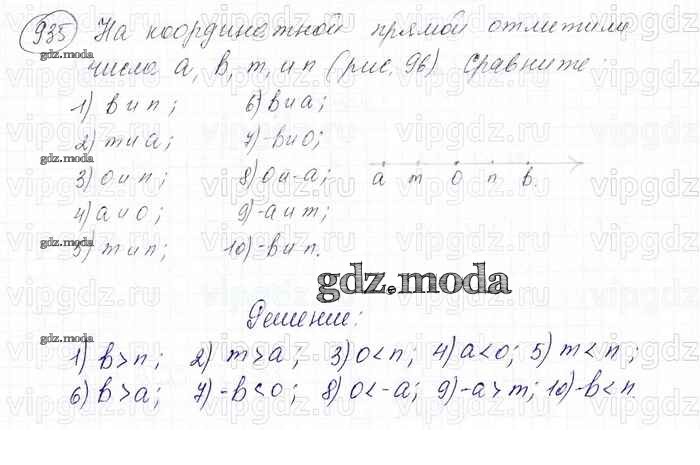 935 На координатной прямой отметили
числа a, b, m, и n (рис. 96) Сравните:
1) b и n; 6) b и a;
2) m и a; 7) -b и 0;
3) 0 и n; 8) 0 и -a;
4) a и 0; 9) -a и m;
5) m и n; 10) -b и n.
a m 0 n b.
gdz.moda
Решение:
1) b > n; 2) m > a; 3) 0 < n; 4) a < 0; 5) m < n;
6) b > a; 7) -b < 0; 8) 0 < -a; 9) -a > m; 10) -b < n.